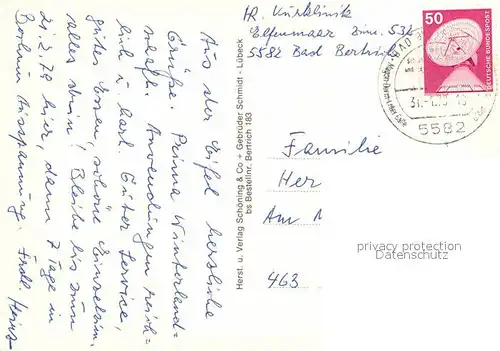 Aus der Eifel herzliche
Grüße. Prima Winterland=
schaft. Anwendungen reich=
lich u. hart. Guter Service,
gutes Essen, schöne Einzelzim.
alles drin! Bleibe bis zum
21.2.79 hier, dann 7 Tage in
Berlin Ausspannung. Frdl. Heinz
Herst. u. Verlag Schöning & Co + Gebrüder Schmidt - Lübeck
bs Bestellnr. Bertrich 183
Kurklinik
Elfenmaar Zim. 532
5582 Bad Bertrich
50
DEUTSCHE BUNDESPOST
BAD
5582
Familie
Her
Am
463
privacy protection
Datenschutz